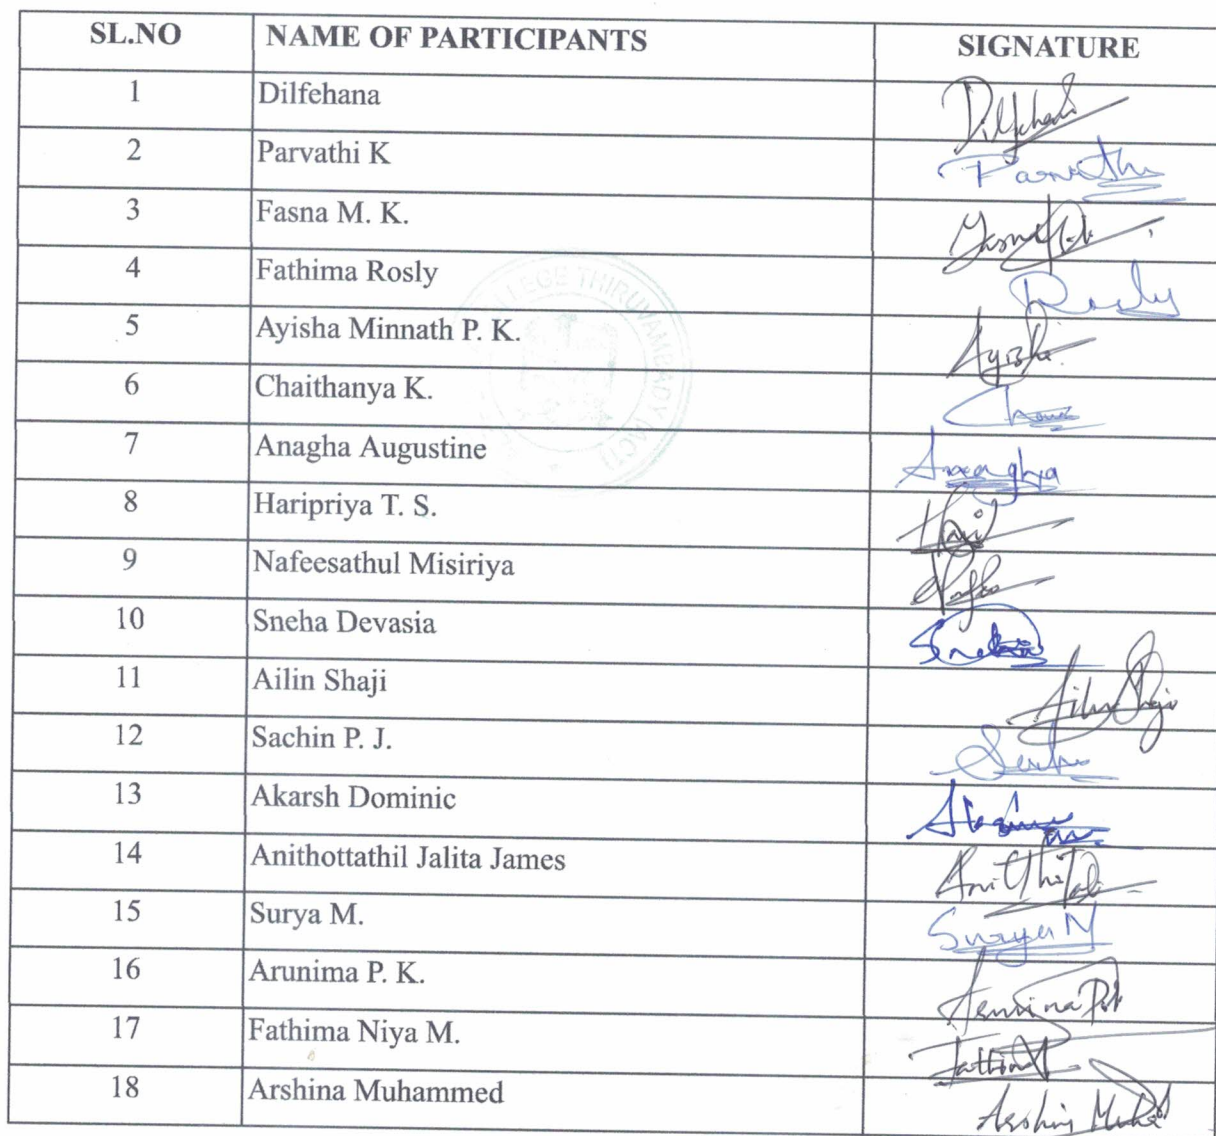 SL.NO NAME OF PARTICIPANTS SIGNATURE
1 Dilfehana
2 Parvathi K
3 Fasna M. K.
4 Fathima Rosly Rosly
5 Ayisha Minnath P. K. Ayisha
6 Chaithanya K.
7 Anagha Augustine Anagha
8 Haripriya T. S.
9 Nafeesathul Misiriya
10 Sneha Devasia
11 Ailin Shaji Ailin Shaji
12 Sachin P. J.
13 Akarsh Dominic
14 Anithottathil Jalita James
15 Surya M. Surya M
16 Arunima P. K.
17 Fathima Niya M.
18 Arshina Muhammed
LLEGE THIRUVAMBADY (MCT)